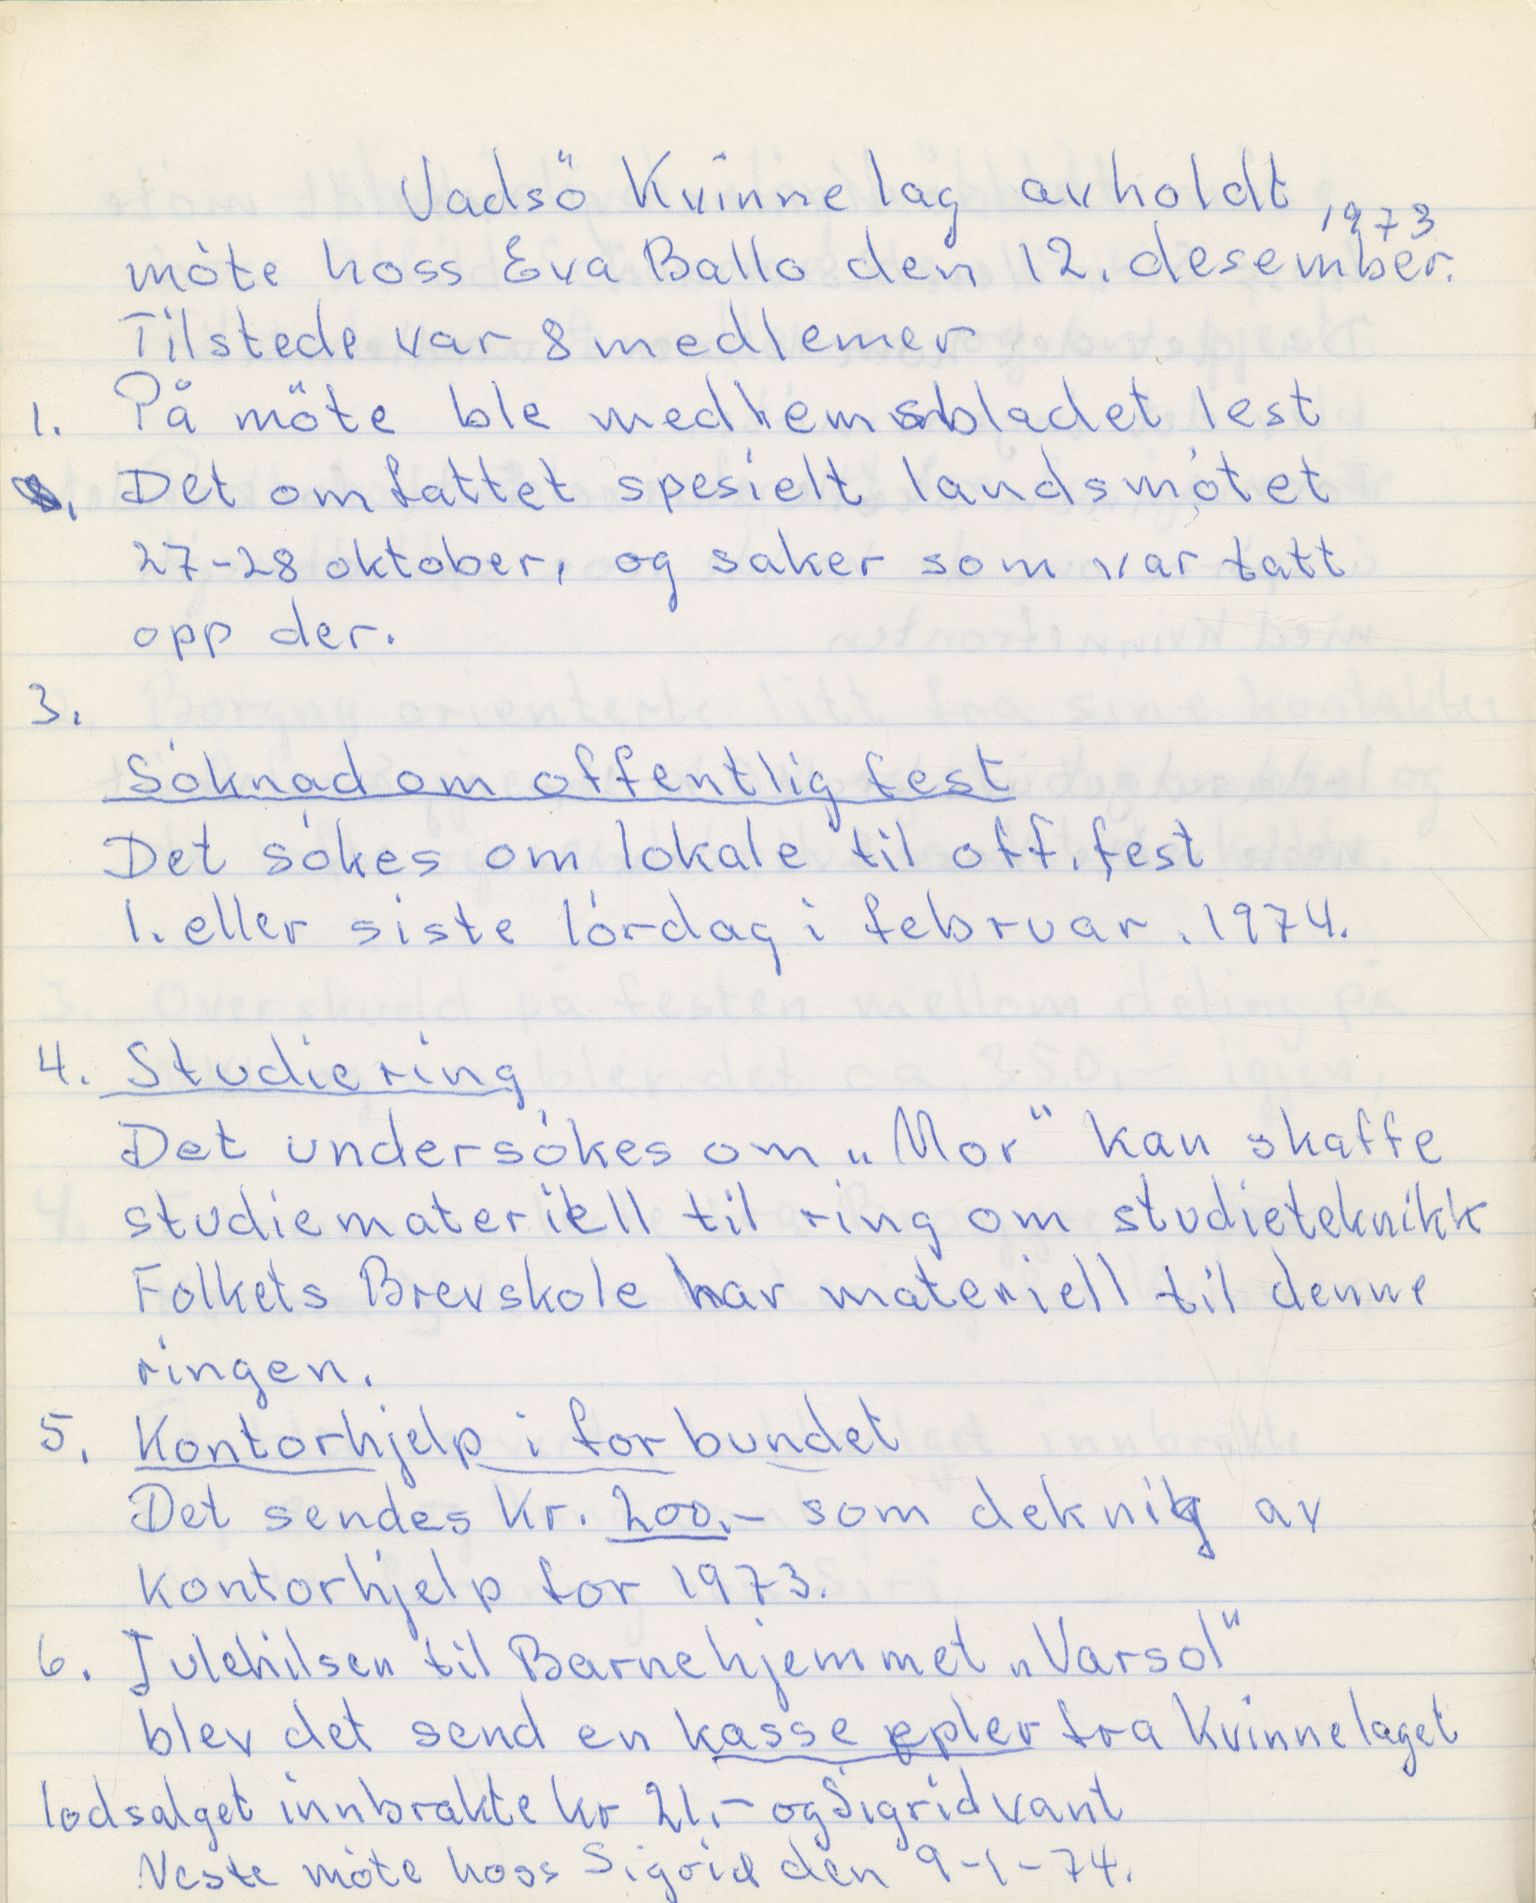 Vadsö Kvinnelag avholdt
1973
móte hoss Eva Ballo den 12. desember.
Tilstede var 8 medlemer
1. På möte ble medlemsbladet lest
Det omfattet spesielt landsmótet
27-28 oktober, og saker som var tatt
opp der.
3.
Sóknad om offentlig fest
Det sókes om lokale til off. fest
1. eller siste lórdag i februar. 1974.
4. Studiering
Det undersókes om „Mor" kan skaffe
studiemateriell til ring om studieteknikk
Folkets Brevskole har materiell til denne
ringen.
5. Kontorhjelp i forbundet
Det sendes Kr. 200.- som deknig av
kontorhjelp for 1973.
6. Julehilsen til Barnehjemmet „Varsol"
blev det send en kasse epler fra Kvinnelaget
lodsalget innbrakte kr 21.- og Sigrid vant
Neste möte hoss Sigrid den 9-1-74.